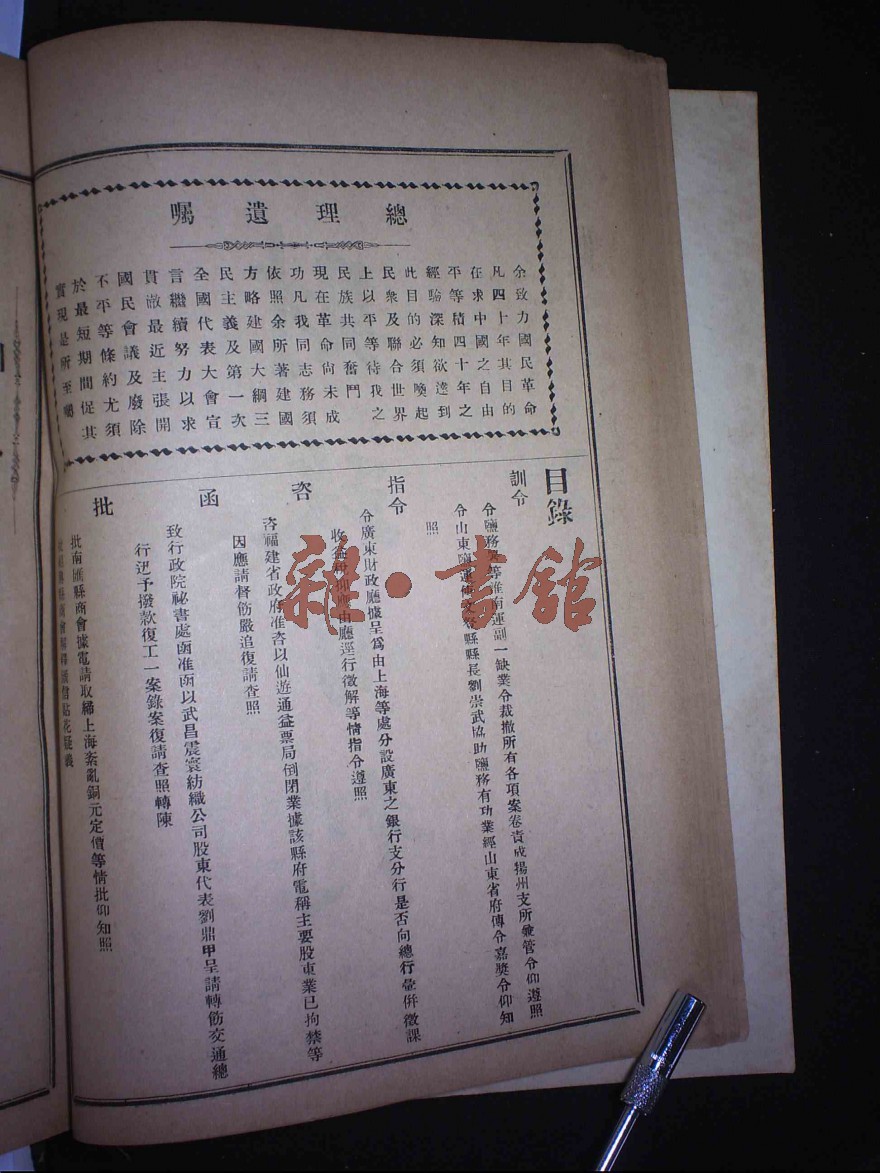 總理遺囑
余致力國民革命
凡四十年其目的
在求中國之自由
平等積四十年之
經驗深知欲達到
此目的必須喚起
民衆及聯合世界
上以平等待我之
民族共同奮鬥
現在革命尙未成
功凡我同志務須
依照余所著建國
方略建國大綱三
民主義及第一次
全國代表大會宣
言繼續努力以求
貫澈最近主張開
國民會議及廢除
不平等條約尤須
於最短期間促其
實現是所至囑
目錄
訓令
令鹽務署等淮南運副一缺業令裁撤所有各項案卷責成揚州支所兼管令仰遵照
令山東鹽運使文登縣縣長劉崇武協助鹽務有功業經山東省府傳令嘉獎令仰知
照
指令
令廣東財政廳據呈爲由上海等處分設廣東之銀行支分行是否向總行彙併徵課
收益稅抑應由廳逕行徵解等情指令遵照
咨
咨福建省政府准咨以仙遊通益票局倒閉業據該縣府電稱主要股東業已拘禁等
因應請督飭嚴追復請查照
函
致行政院祕書處函准函以武昌震寰紡織公司股東代表劉鼎甲呈請轉飭交通總
行迅予撥款復工一案錄案復請查照轉陳
批
批南匯縣商會據電請取締上海紊亂銅元定價等情批仰知照
縣商會解釋通信貼花疑義
雜·書館